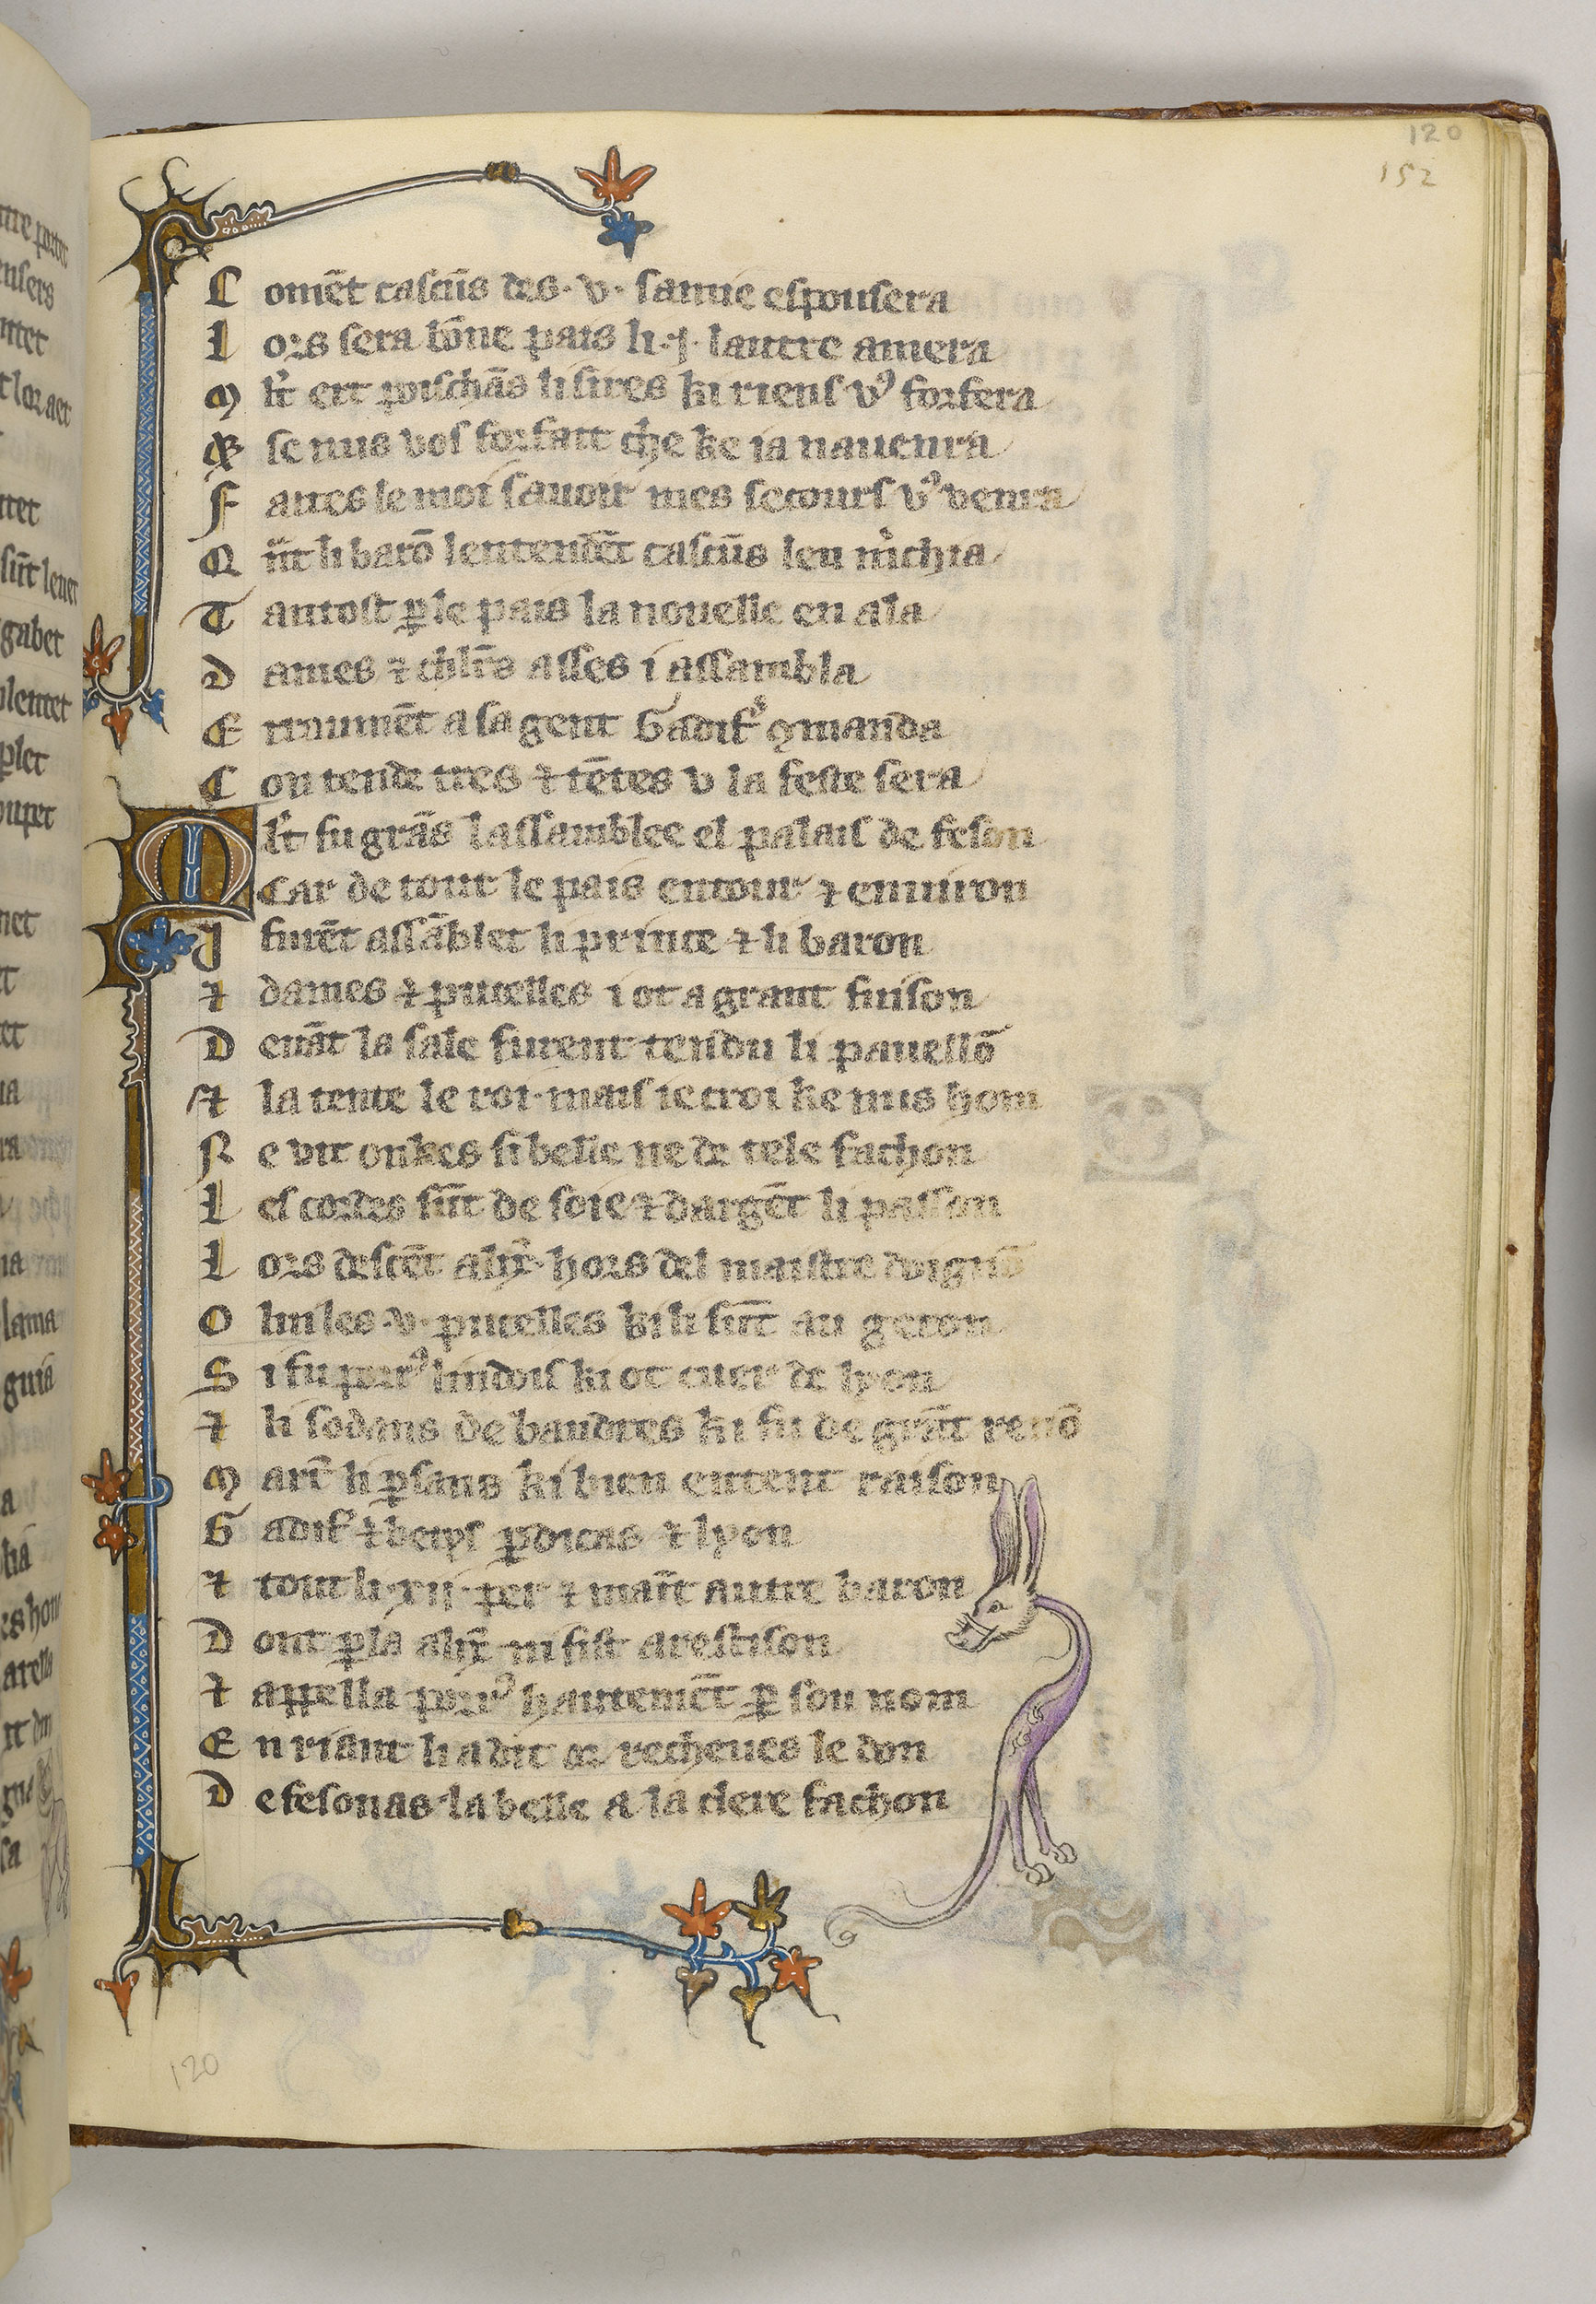 120
152
C omēt cascūs des · v · sa mie espousera
L ors sera bōne pais li · j · lautre amera
M lt ert poischās li sires ki riens vꝰ forfera
Et se nus vos forfait che ke ia nauenra
F aites le moi sauoir mes secours vꝰ venra
Q nt li barō lentendēt cascūs len mchia
T antost ꝑ le pais la nouelle en ala
D ames ⁊ chlrs asses i assambla
E rraumēt a sa gent Gadifꝰ ꝯmanda
C on tende tres ⁊ tētes v la feste sera
M lt fu grās lassamblee el palais de feson
Car de tout le pais entour ⁊ enuiron
I furēt assāblet li prince ⁊ li baron
⁊ dames ⁊ pucelles i ot a grant fuison
D euāt la sale furent tendu li pauellō
⁊ la tente le roi · mais ie croi ke nus hom
N e vit onkes si belle ne de tele fachon
L es cordes sūt de soie ⁊ dargēt li passon
L ors descēt alix̄ · hors del maistre doignō
O lui les · v · pucelles ki li sūt au geron
S i fu porrꝰ lindois ki ot cuer de lyon
⁊ li sodans de baudres ki fu de grāt renō
M arc̄ li ꝑsans ki bien entent raison
G adif ⁊ betys ꝑdicas ⁊ lyon
⁊ tout li · xij · per ⁊ maīt autre baron
D ont ꝑla alix̄ · ni fist arestison
⁊ appella porrꝰ hautemēt ꝑ son nom
E n riant li a dit or recheues le don
D e fesonas · la belle a la clere fachon
120